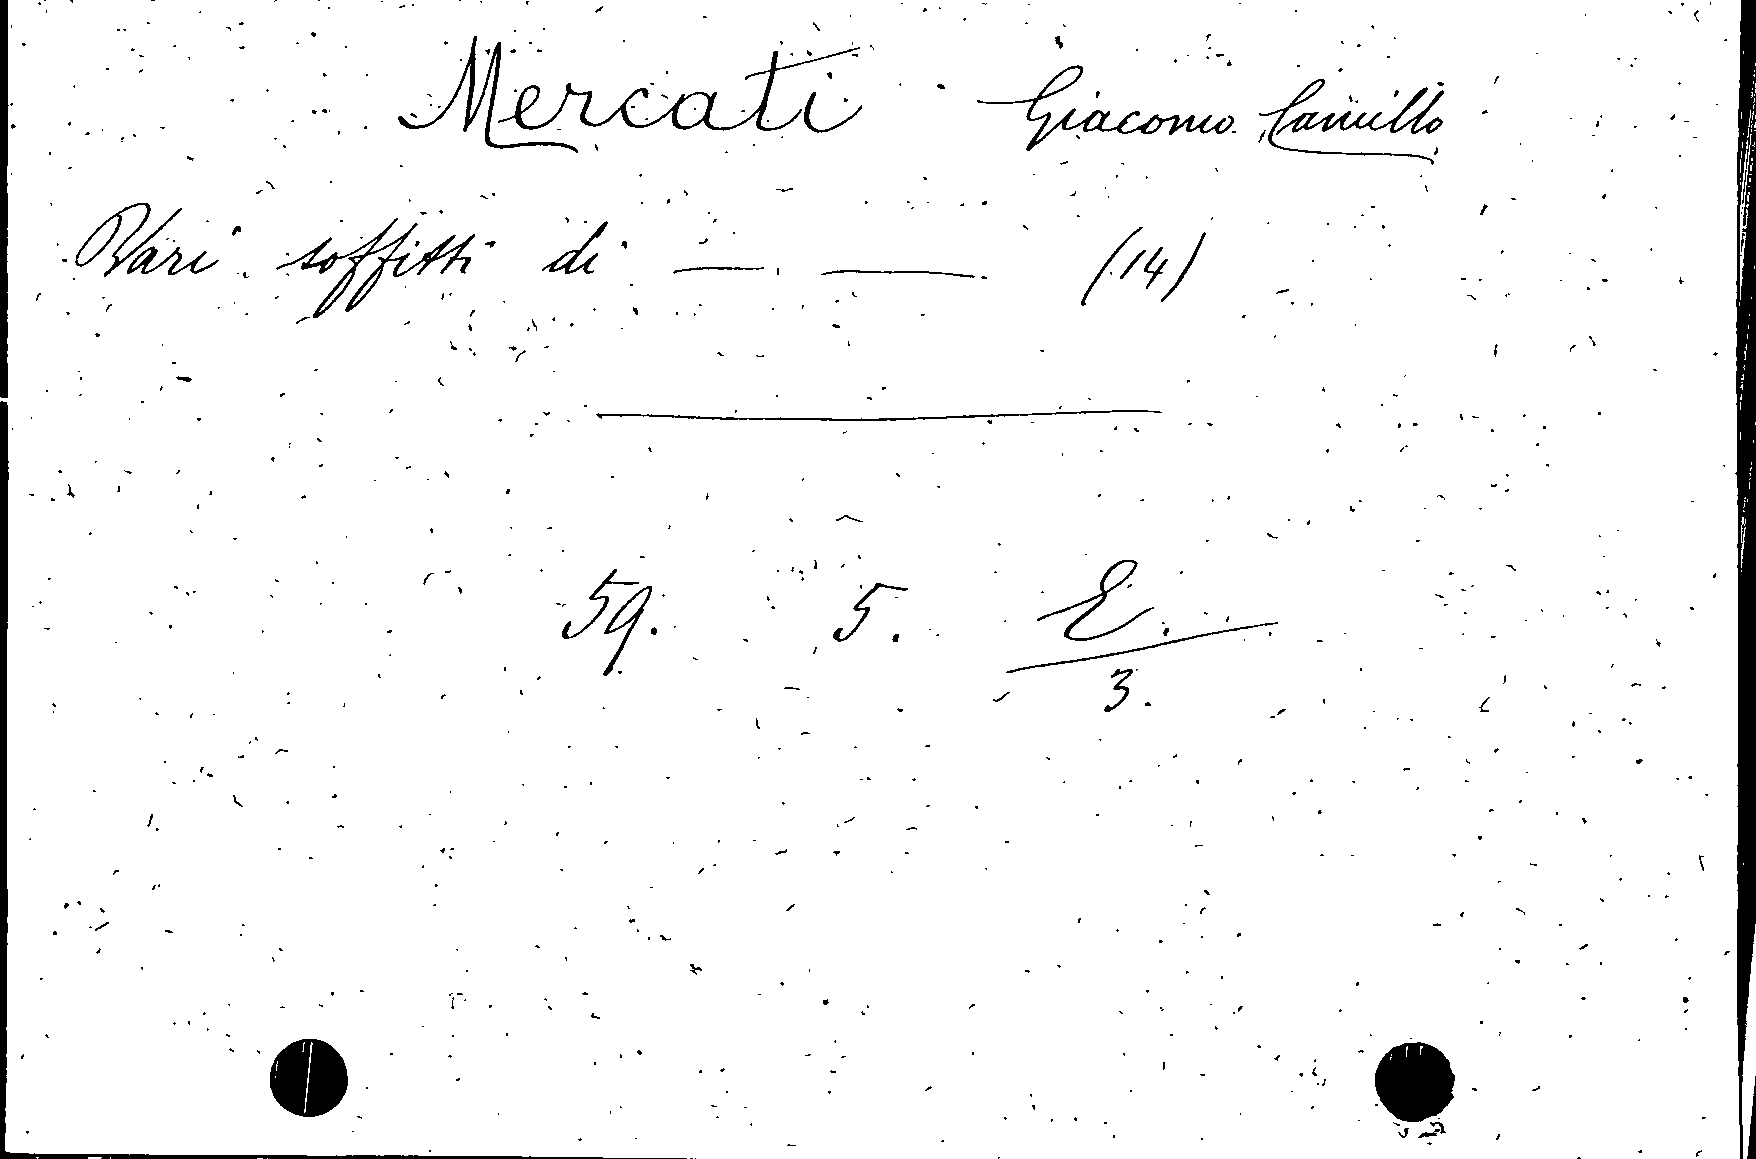 Mercati Giacomo Camillo
Vari soffitti di — — (14)
59. 5. E.
3.